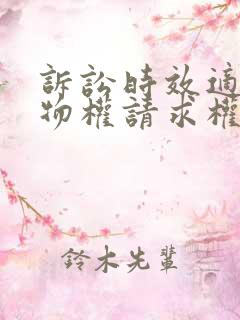 訴訟時效適
物權請求權
鈴木先輩